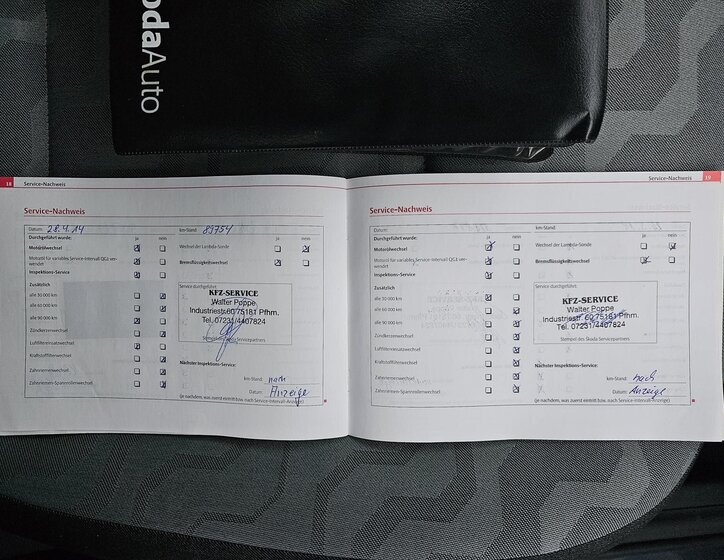 odaAuto
18 Service-Nachweis
Service-Nachweis
Datum: 28.4.14 km-Stand: 89754
Durchgeführt wurde: ja nein
Motorölwechsel
Motoröl für variables Service-Intervall QG1 ver-
wendet
Inspektions-Service
Zusätzlich
alle 30 000 km
alle 60 000 km
alle 90 000 km
Zündkerzenwechsel
Luftfiltereinsatzwechsel
Kraftstofffilterwechsel
Zahnriemenwechsel
Zahnriemen-Spannrollenwechsel
ja nein
Wechsel der Lambda-Sonde
Bremsflüssigkeitswechsel
Service durchgeführt:
KFZ-SERVICE
Walter Poppe
Industriestr.60 75181 Pfhm.
Tel. 07231/4407824
Stempel des Škoda Servicepartners
Nächster Inspektions-Service:
km-Stand: nach
Datum: Anzeige
(je nachdem, was zuerst eintrifft bzw. nach Service-Intervall-Anzeige)
Service-Nachweis 19
Service-Nachweis
Datum: km-Stand:
Durchgeführt wurde: ja nein
Motorölwechsel
Motoröl für variables Service-Intervall QG1 ver-
wendet
Inspektions-Service
Zusätzlich
alle 30 000 km
alle 60 000 km
alle 90 000 km
Zündkerzenwechsel
Luftfiltereinsatzwechsel
Kraftstofffilterwechsel
Zahnriemenwechsel
Zahnriemen-Spannrollenwechsel
ja nein
Wechsel der Lambda-Sonde
Bremsflüssigkeitswechsel
Service durchgeführt:
KFZ-SERVICE
Walter Poppe
Industriestr.60 75181 Pfhm.
Tel. 07231/4407824
Stempel des Škoda Servicepartners
Nächster Inspektions-Service:
km-Stand: nach
Datum: Anzeige
(je nachdem, was zuerst eintrifft bzw. nach Service-Intervall-Anzeige)